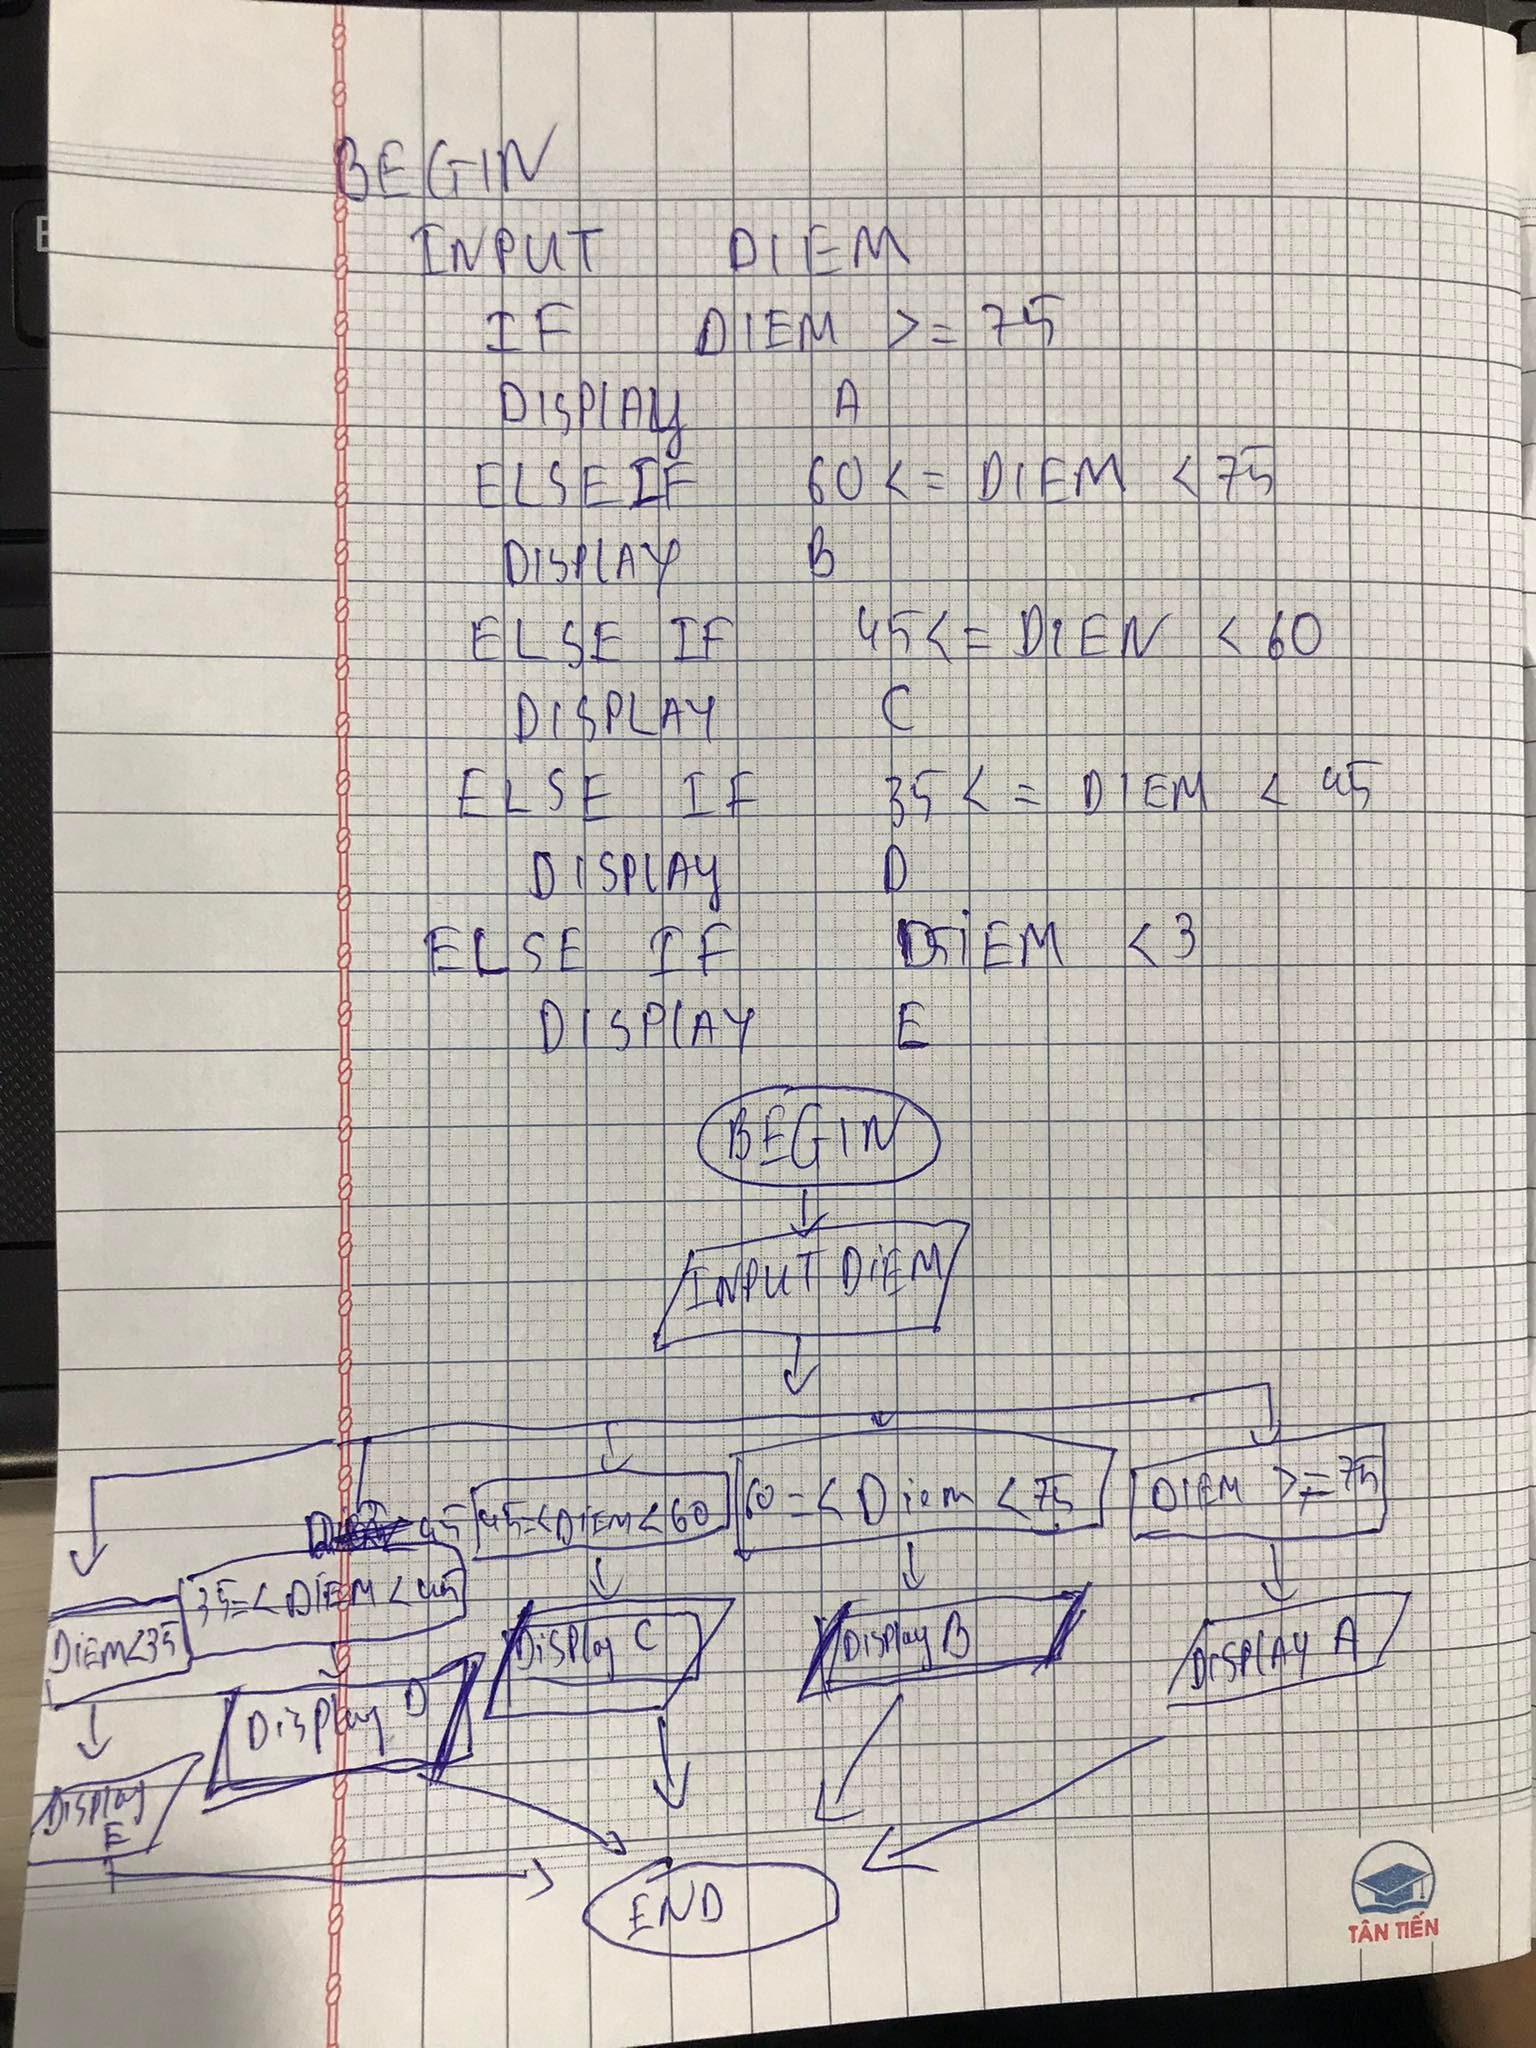 BEGIN
INPUT DIEM
IF DIEM >= 75
DISPLAY A
ELSE IF 60 <= DIEM < 75
DISPLAY B
ELSE IF 45 <= DIEN < 60
DISPLAY C
ELSE IF 35 <= DIEM < 45
DISPLAY D
ELSE IF DIEM < 3
DISPLAY E
BEGIN
INPUT DIEM
45
45=<DIEM<60
60=<Diem <75
DIEM >=75
DIEM<35
35=<DIEM<45
Display C
Display B
DISPLAY A
Display D
Display
E
END
TÂN TIẾN